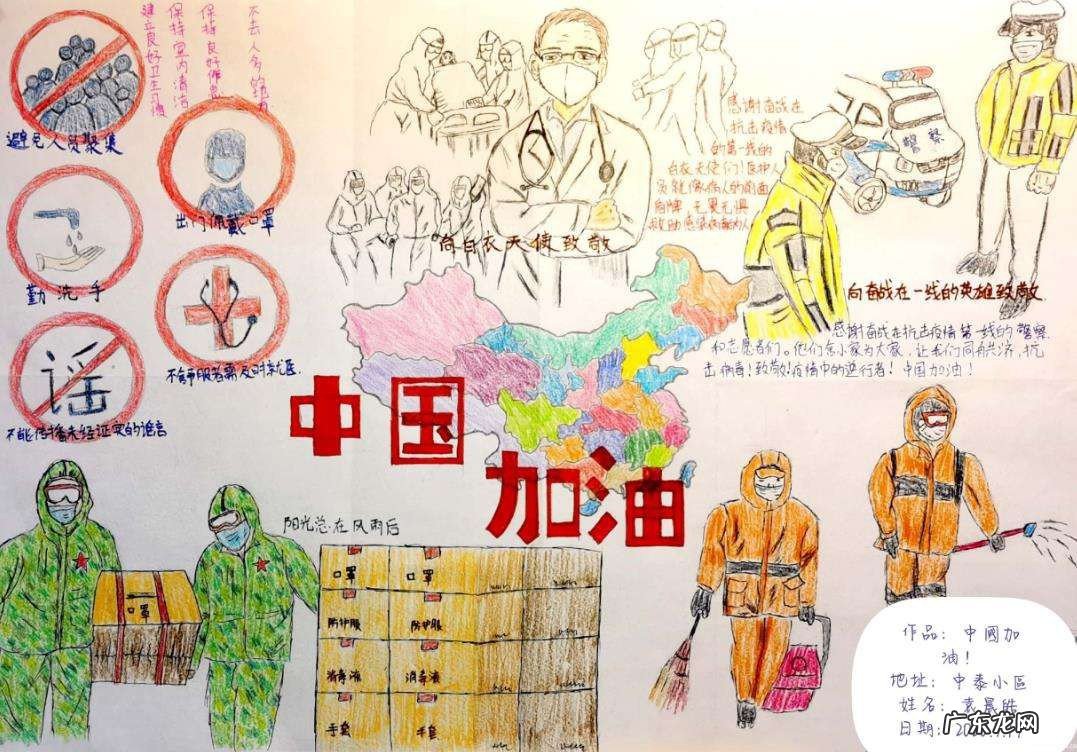 建立良好卫生习惯
保持室内清洁
不去人多的地方
避免人员聚集
勤洗手
谣
不能传播未经证实的谣言
出门佩戴口罩
向白衣天使致敬
感谢奋战在
抗击疫情
的第一线的
白衣天使们!医护人
警察
向奋战在一线的英雄致敬
感谢奋战在抗击疫情第一线的警察
和志愿者们。他们舍小家为大家,让我们同舟共济,抗
击病毒!致敬!疫情中的逆行者!中国加油!
中国
加油
阳光总在风雨后
口罩
口罩
口罩
防护服
防护服
消毒液
消毒液
手套
手套
作品:中國加
油!
地址:中泰小區
姓名:袁晨皓
日期:
广东龙网